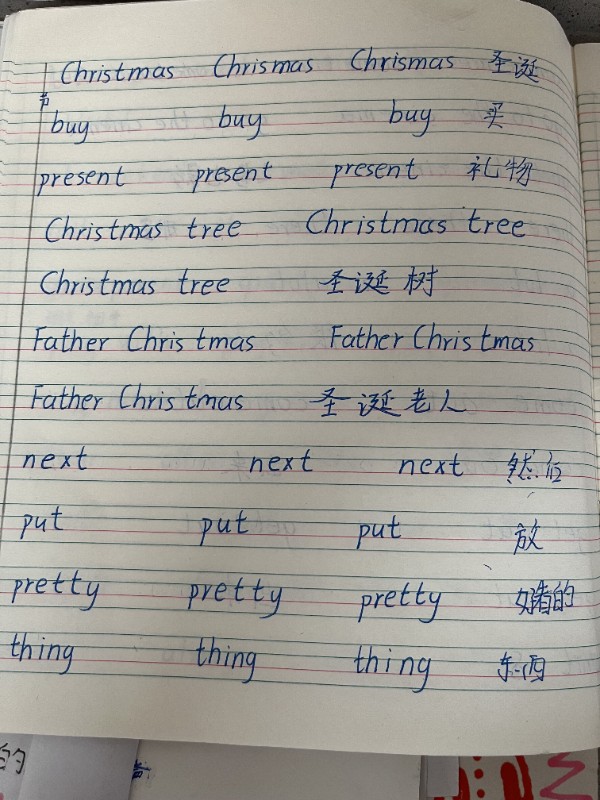 Christmas Chrismas Chrismas 圣诞
节
buy buy buy 买
present present present 礼物
Christmas tree Christmas tree
Christmas tree 圣诞树
Father Christmas Father Christmas
Father Christmas 圣诞老人
next next next 然后
put put put 放
pretty pretty pretty 的
thing thing thing 东西
的